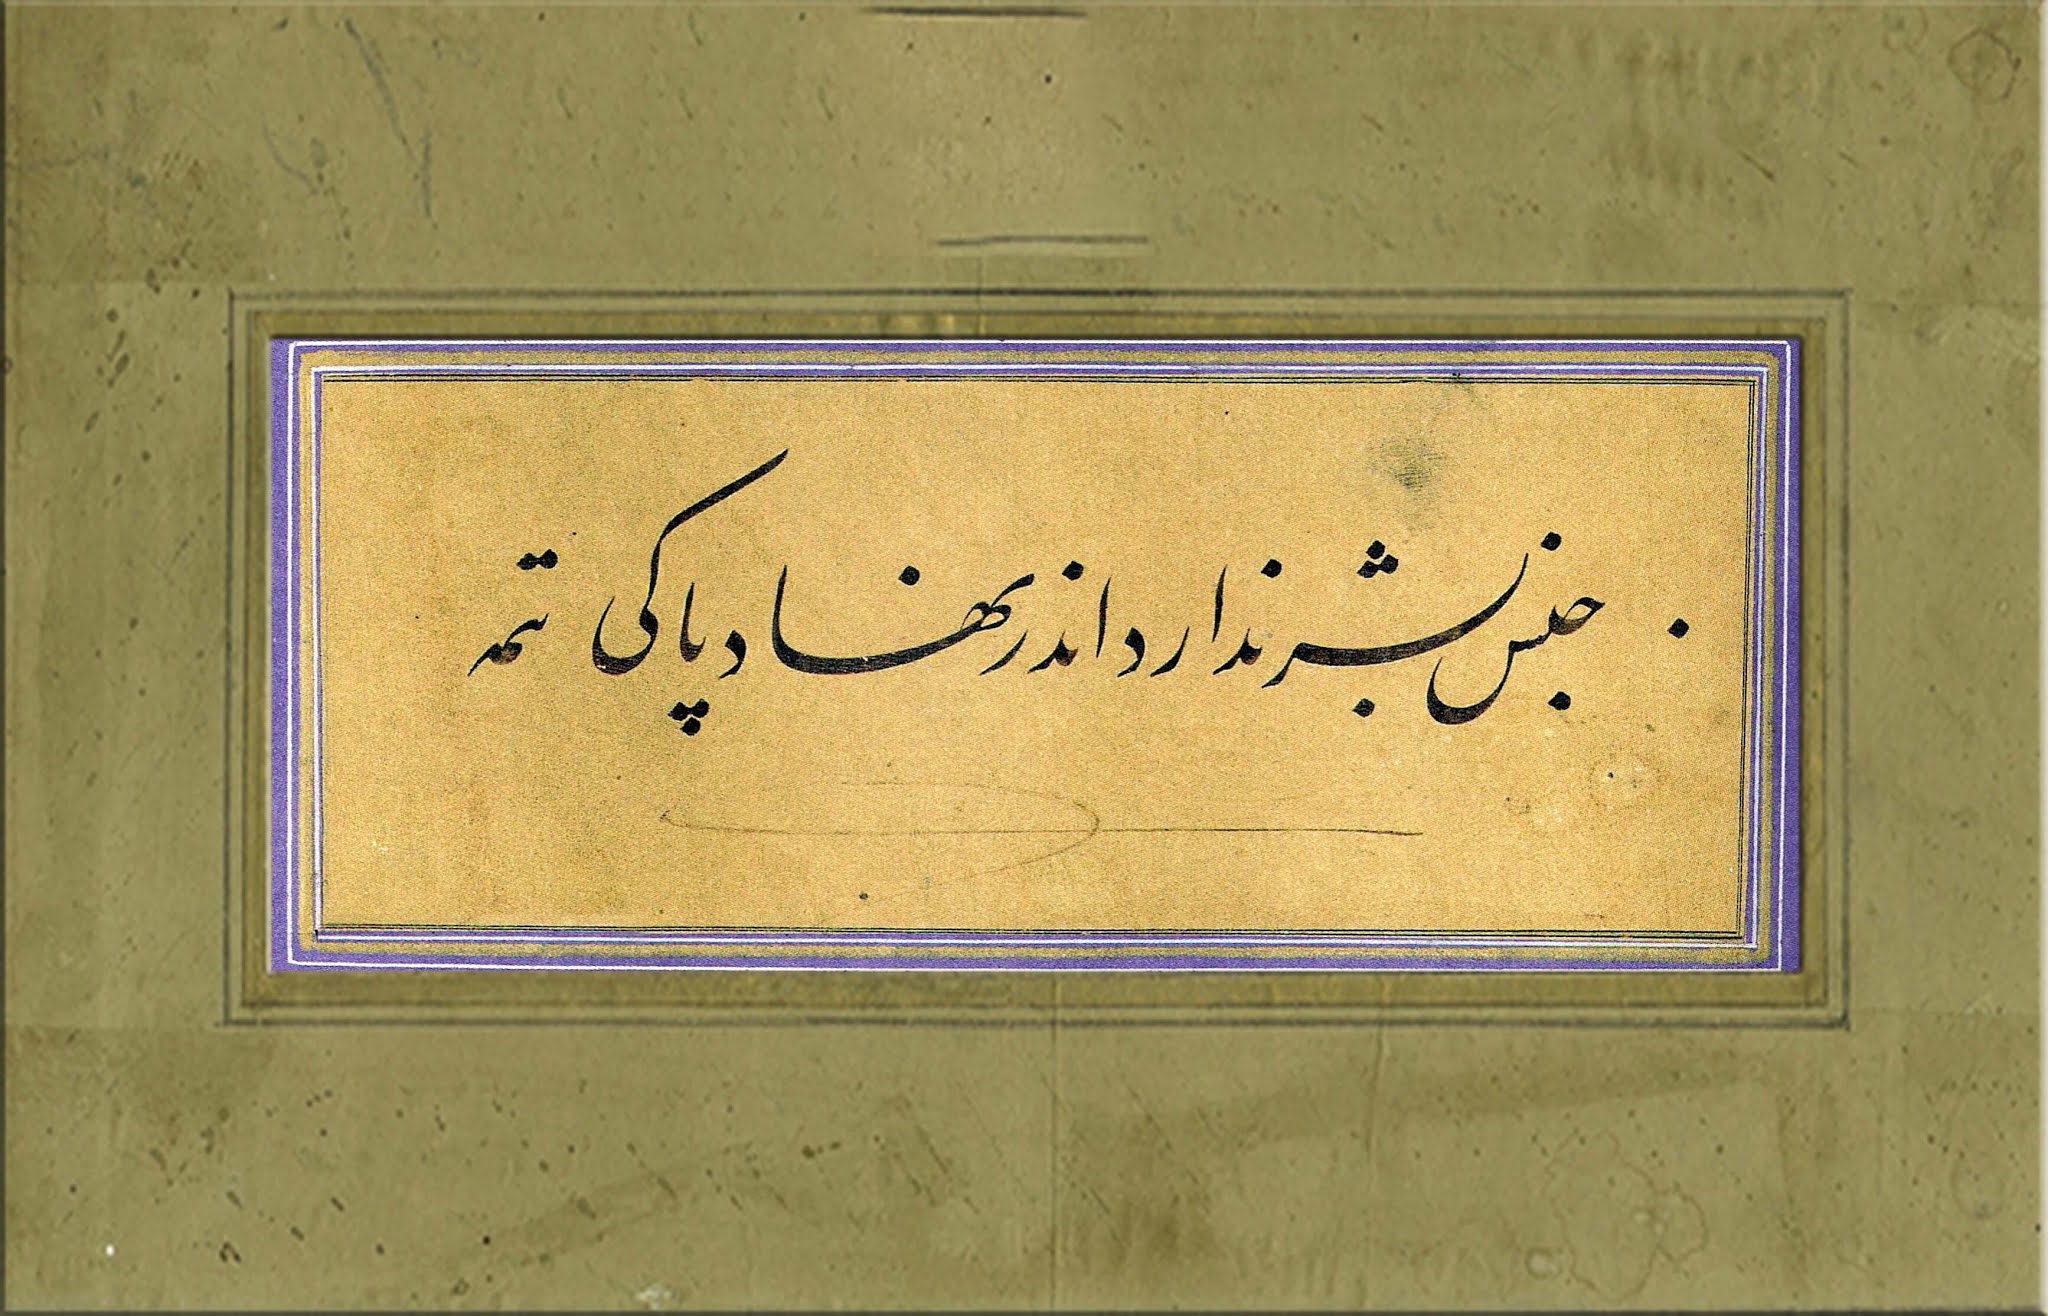 جنس بشر ندارد اندر نهاد پاکی تتمه